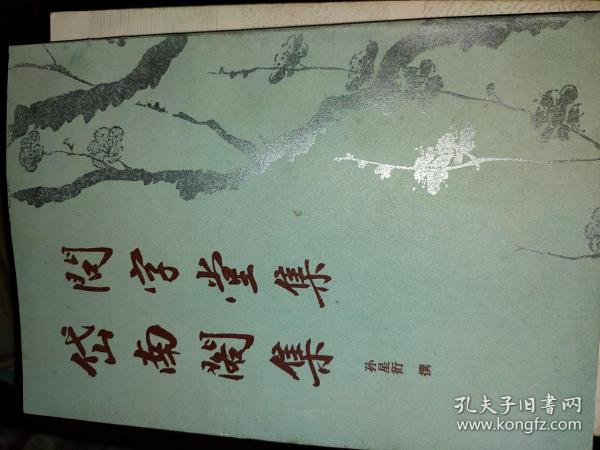 問字堂集
岱南閣集
孙星衍 撰
孔夫子旧书网
www.kongfz.com